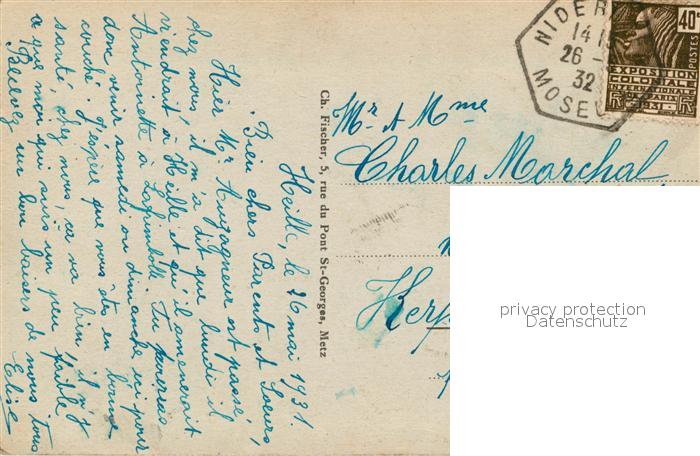 Heille, le 26 mai 1931.
Bien chers Parents et Soeurs,
Hier Mr Augagneur est passé
chez nous, il m'a dit que lundi il
viendrait à Heille et qu'il amenerait
Antoinette à Lagrimbolle. Tu pourras
donc venir samedi ou dimanche ici pour
coucher. J'espère que vous êtes en bonne
santé, chez nous, ça va bien, il n'y
a que moi qui suis un peu faible
Recevez un bon baisers de nous tous
Elise
Ch. Fischer, 5, rue du Pont St-Georges, Metz
NIDER
14
26
32
MOSEL
40c
POSTES
EXPOSITION
COLONIALE
INTERNATIONALE
PARIS 1931
Mr et Mme
Charles Marchal
Kerp
privacy protection
Datenschutz